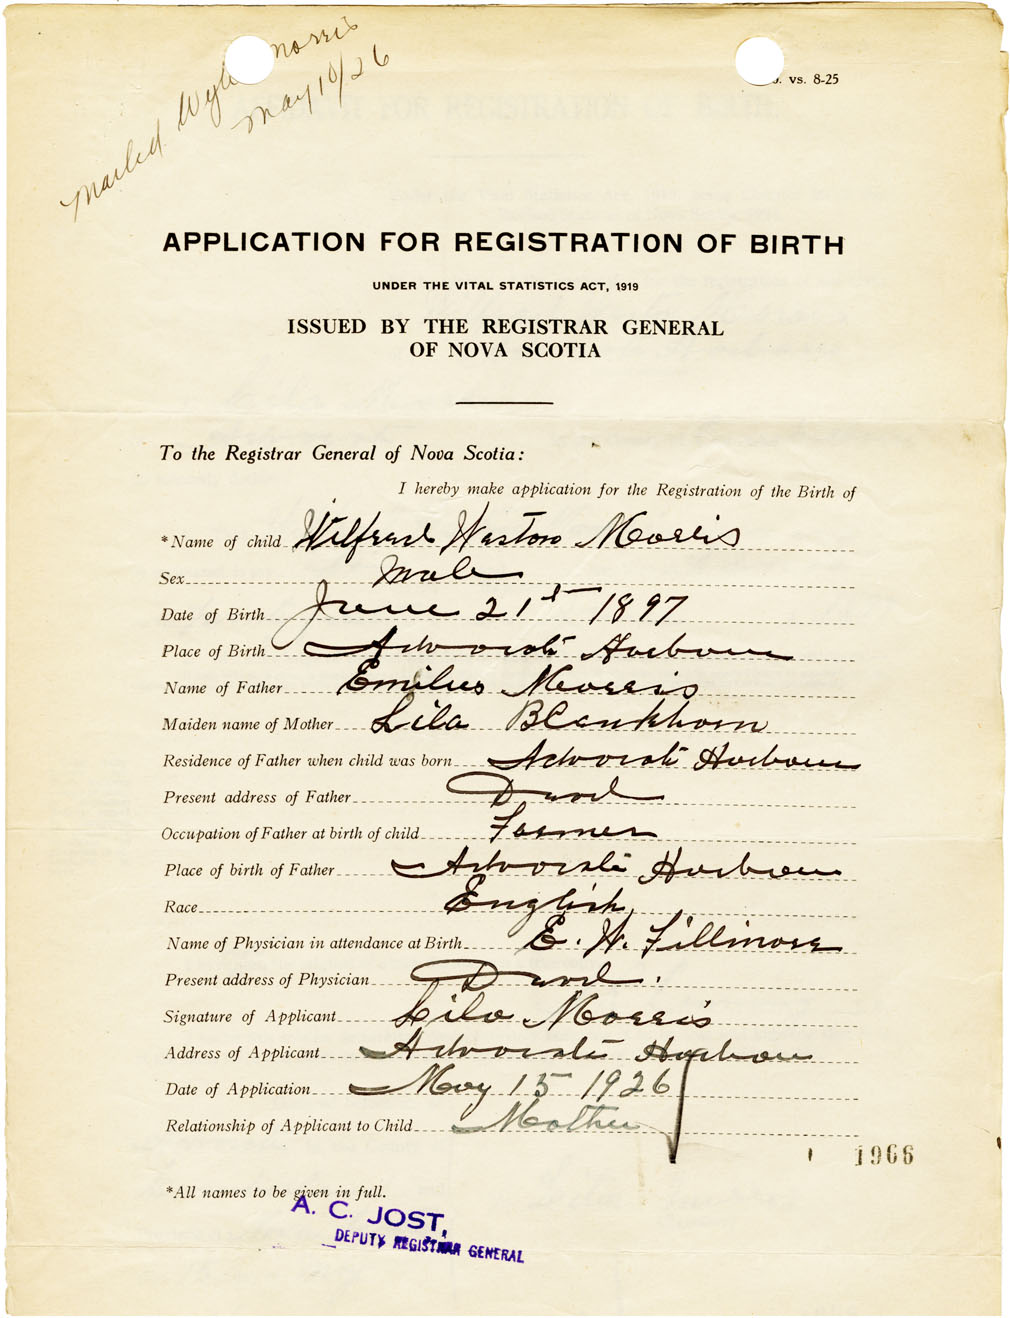 Mailed Morris
May 10/26
vs. 8-25
APPLICATION FOR REGISTRATION OF BIRTH
UNDER THE VITAL STATISTICS ACT, 1919
ISSUED BY THE REGISTRAR GENERAL
OF NOVA SCOTIA
To the Registrar General of Nova Scotia:
I hereby make application for the Registration of the Birth of
*Name of child Wilfred Weston Morris
Sex Male
Date of Birth June 21st 1897
Place of Birth Advocate Harbour
Name of Father Emilus Morris
Maiden name of Mother Lila Blenkhorn
Residence of Father when child was born Advocate Harbour
Present address of Father Dead
Occupation of Father at birth of child Farmer
Place of birth of Father Advocate Harbour
Race English
Name of Physician in attendance at Birth E. H. Fillmore
Present address of Physician Dead.
Signature of Applicant Lila Morris
Address of Applicant Advocate Harbour
Date of Application May 15 1926
Relationship of Applicant to Child Mother
1966
*All names to be given in full.
A. C. JOST,
DEPUTY REGISTRAR GENERAL